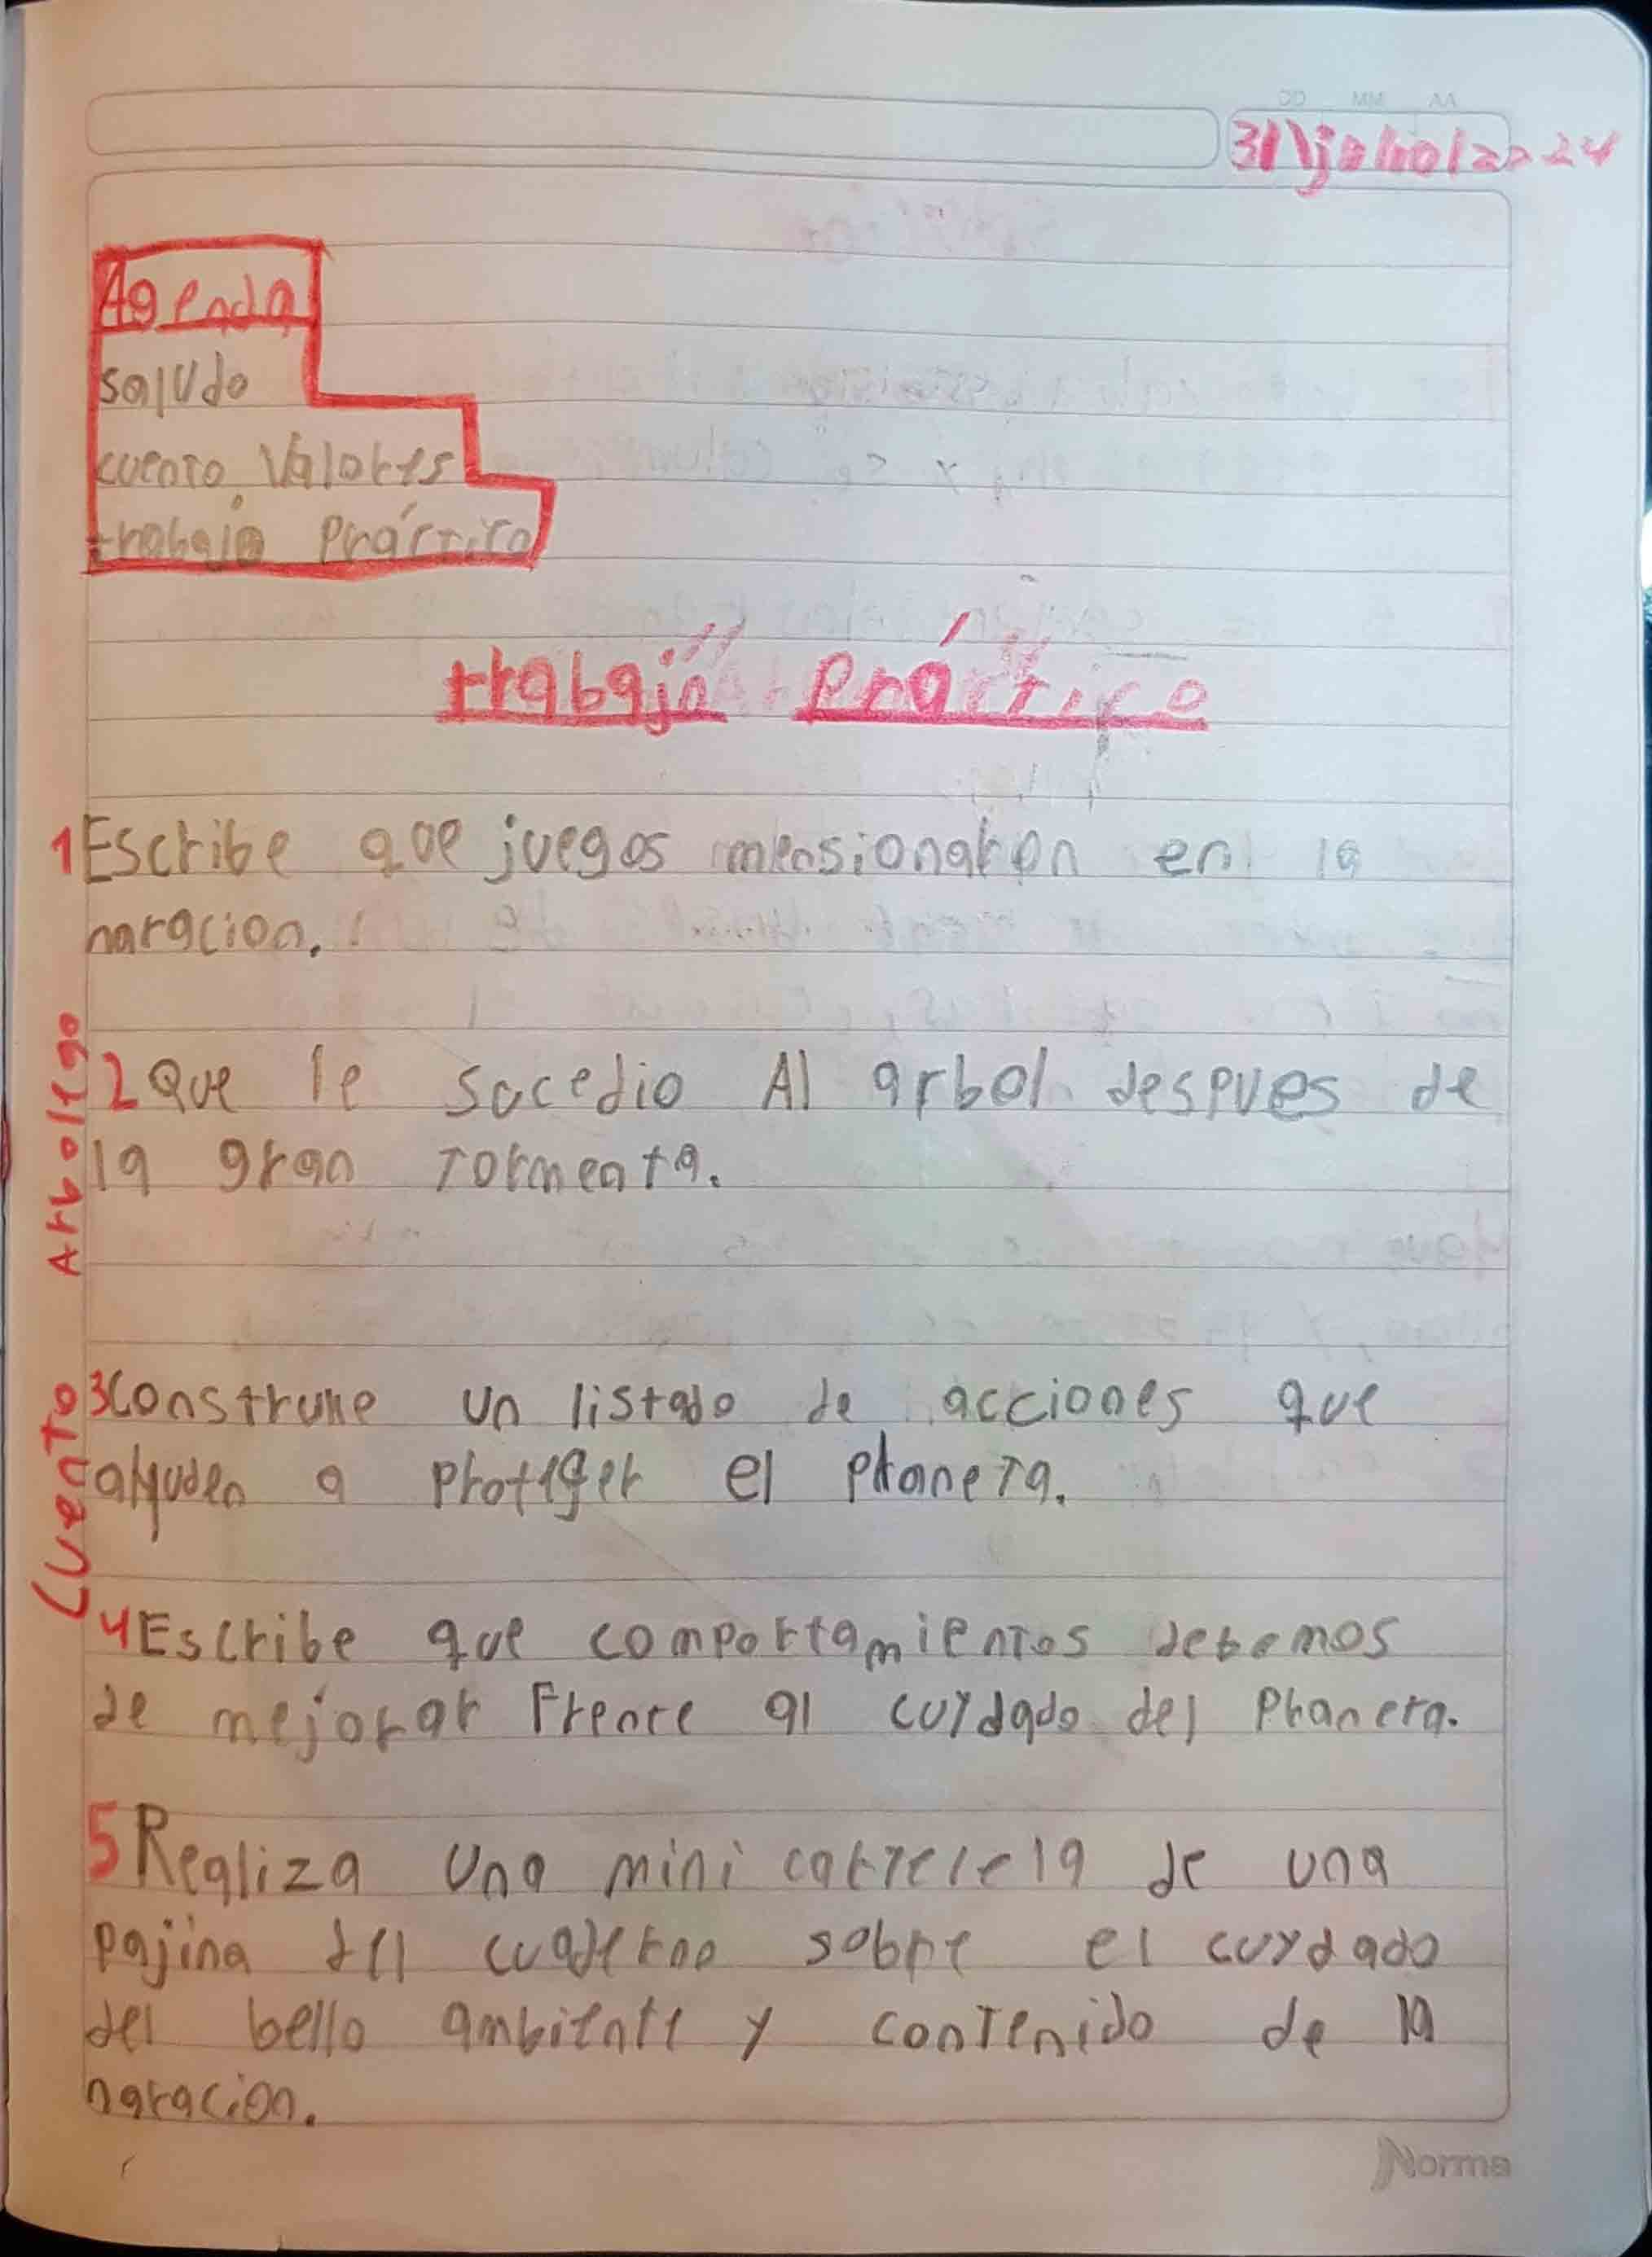 DD MM AA
Agenda
saludo
cuento Valores
trabajo Práctico
trabajo Práctico
1 Escribe que juegos mensionaron en la
naracion.
2 Que le sucedio Al arbol despues de
la gran Tormenta.
3 Construlle un listado de acciones que
alluden a proteger el planeta.
4 Escribe que comportamientos debemos
de mejorar Frente al cuydado del Planeta.
5 Realiza una mini cartelela de una
pajina del cuaderno sobre el cuydado
del bello ambiente y contenido de la
naracion.
Cuento Arbolego
Norma